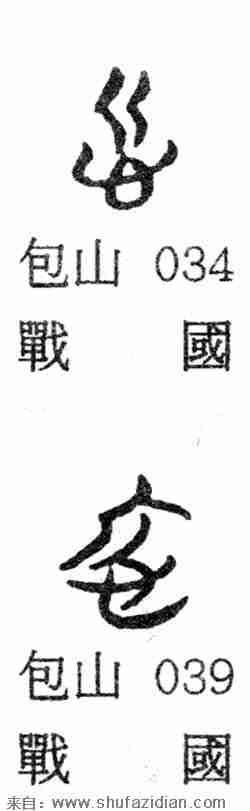 包山 034
戰 國
包山 039
戰 國
来自：www.shufazidian.com